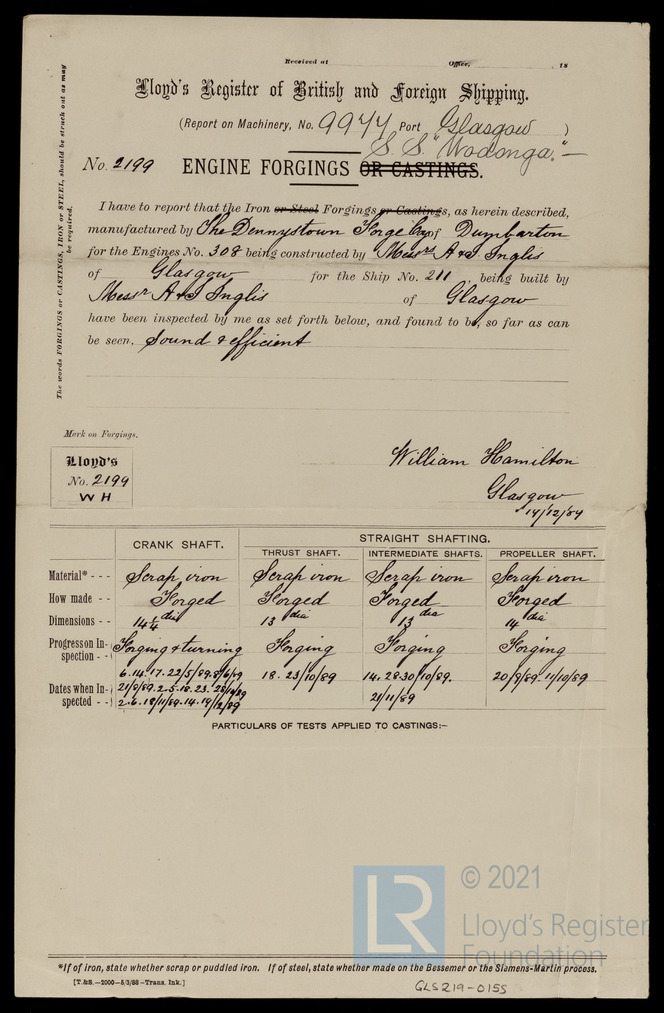 Received at Office, 18
Lloyd's Register of British and Foreign Shipping.
(Report on Machinery, No. 9977 Port Glasgow)
S.S. "Wodonga."
No. 2199 ENGINE FORGINGS OR CASTINGS.
I have to report that the Iron or Steel Forgings or Castings, as herein described,
manufactured by The Dennystown Forge Coy of Dumbarton
for the Engines No. 308 being constructed by Messrs A & J Inglis
of Glasgow for the Ship No. 211, being built by
Messrs A & J Inglis of Glasgow
have been inspected by me as set forth below, and found to be, so far as can
be seen, Sound & efficient
The words FORGINGS or CASTINGS, IRON or STEEL, should be struck out as may
be required.
Mark on Forgings.
Lloyd's
No. 2199
W H
William Hamilton
Glasgow
19/12/89
CRANK SHAFT. STRAIGHT SHAFTING.
THRUST SHAFT. INTERMEDIATE SHAFTS. PROPELLER SHAFT.
Material* - - - Scrap iron Scrap iron Scrap iron Scrap iron
How made - - Forged Forged Forged Forged
Dimensions - - 14 1/4 dia 13 dia 13 dia 14 dia
Progress on In- Forging & turning Forging Forging Forging
spection - -
6.14.17.22/5/89. 18.23/10/89 14.28.30/10/89. 20/9/89. 11/10/89
Dates when In- 21/9/89. 2.5.18.23.
spected - - 2.6.18/11/89. 14.19/12/89 21/11/89
PARTICULARS OF TESTS APPLIED TO CASTINGS:—
LR © 2021
Lloyd's Register
Foundation
*If of iron, state whether scrap or puddled iron. If of steel, state whether made on the Bessemer or the Siemens-Martin process.
[T.&S.—2000—5/3/88—Trans. Ink.]
GLS219-0155